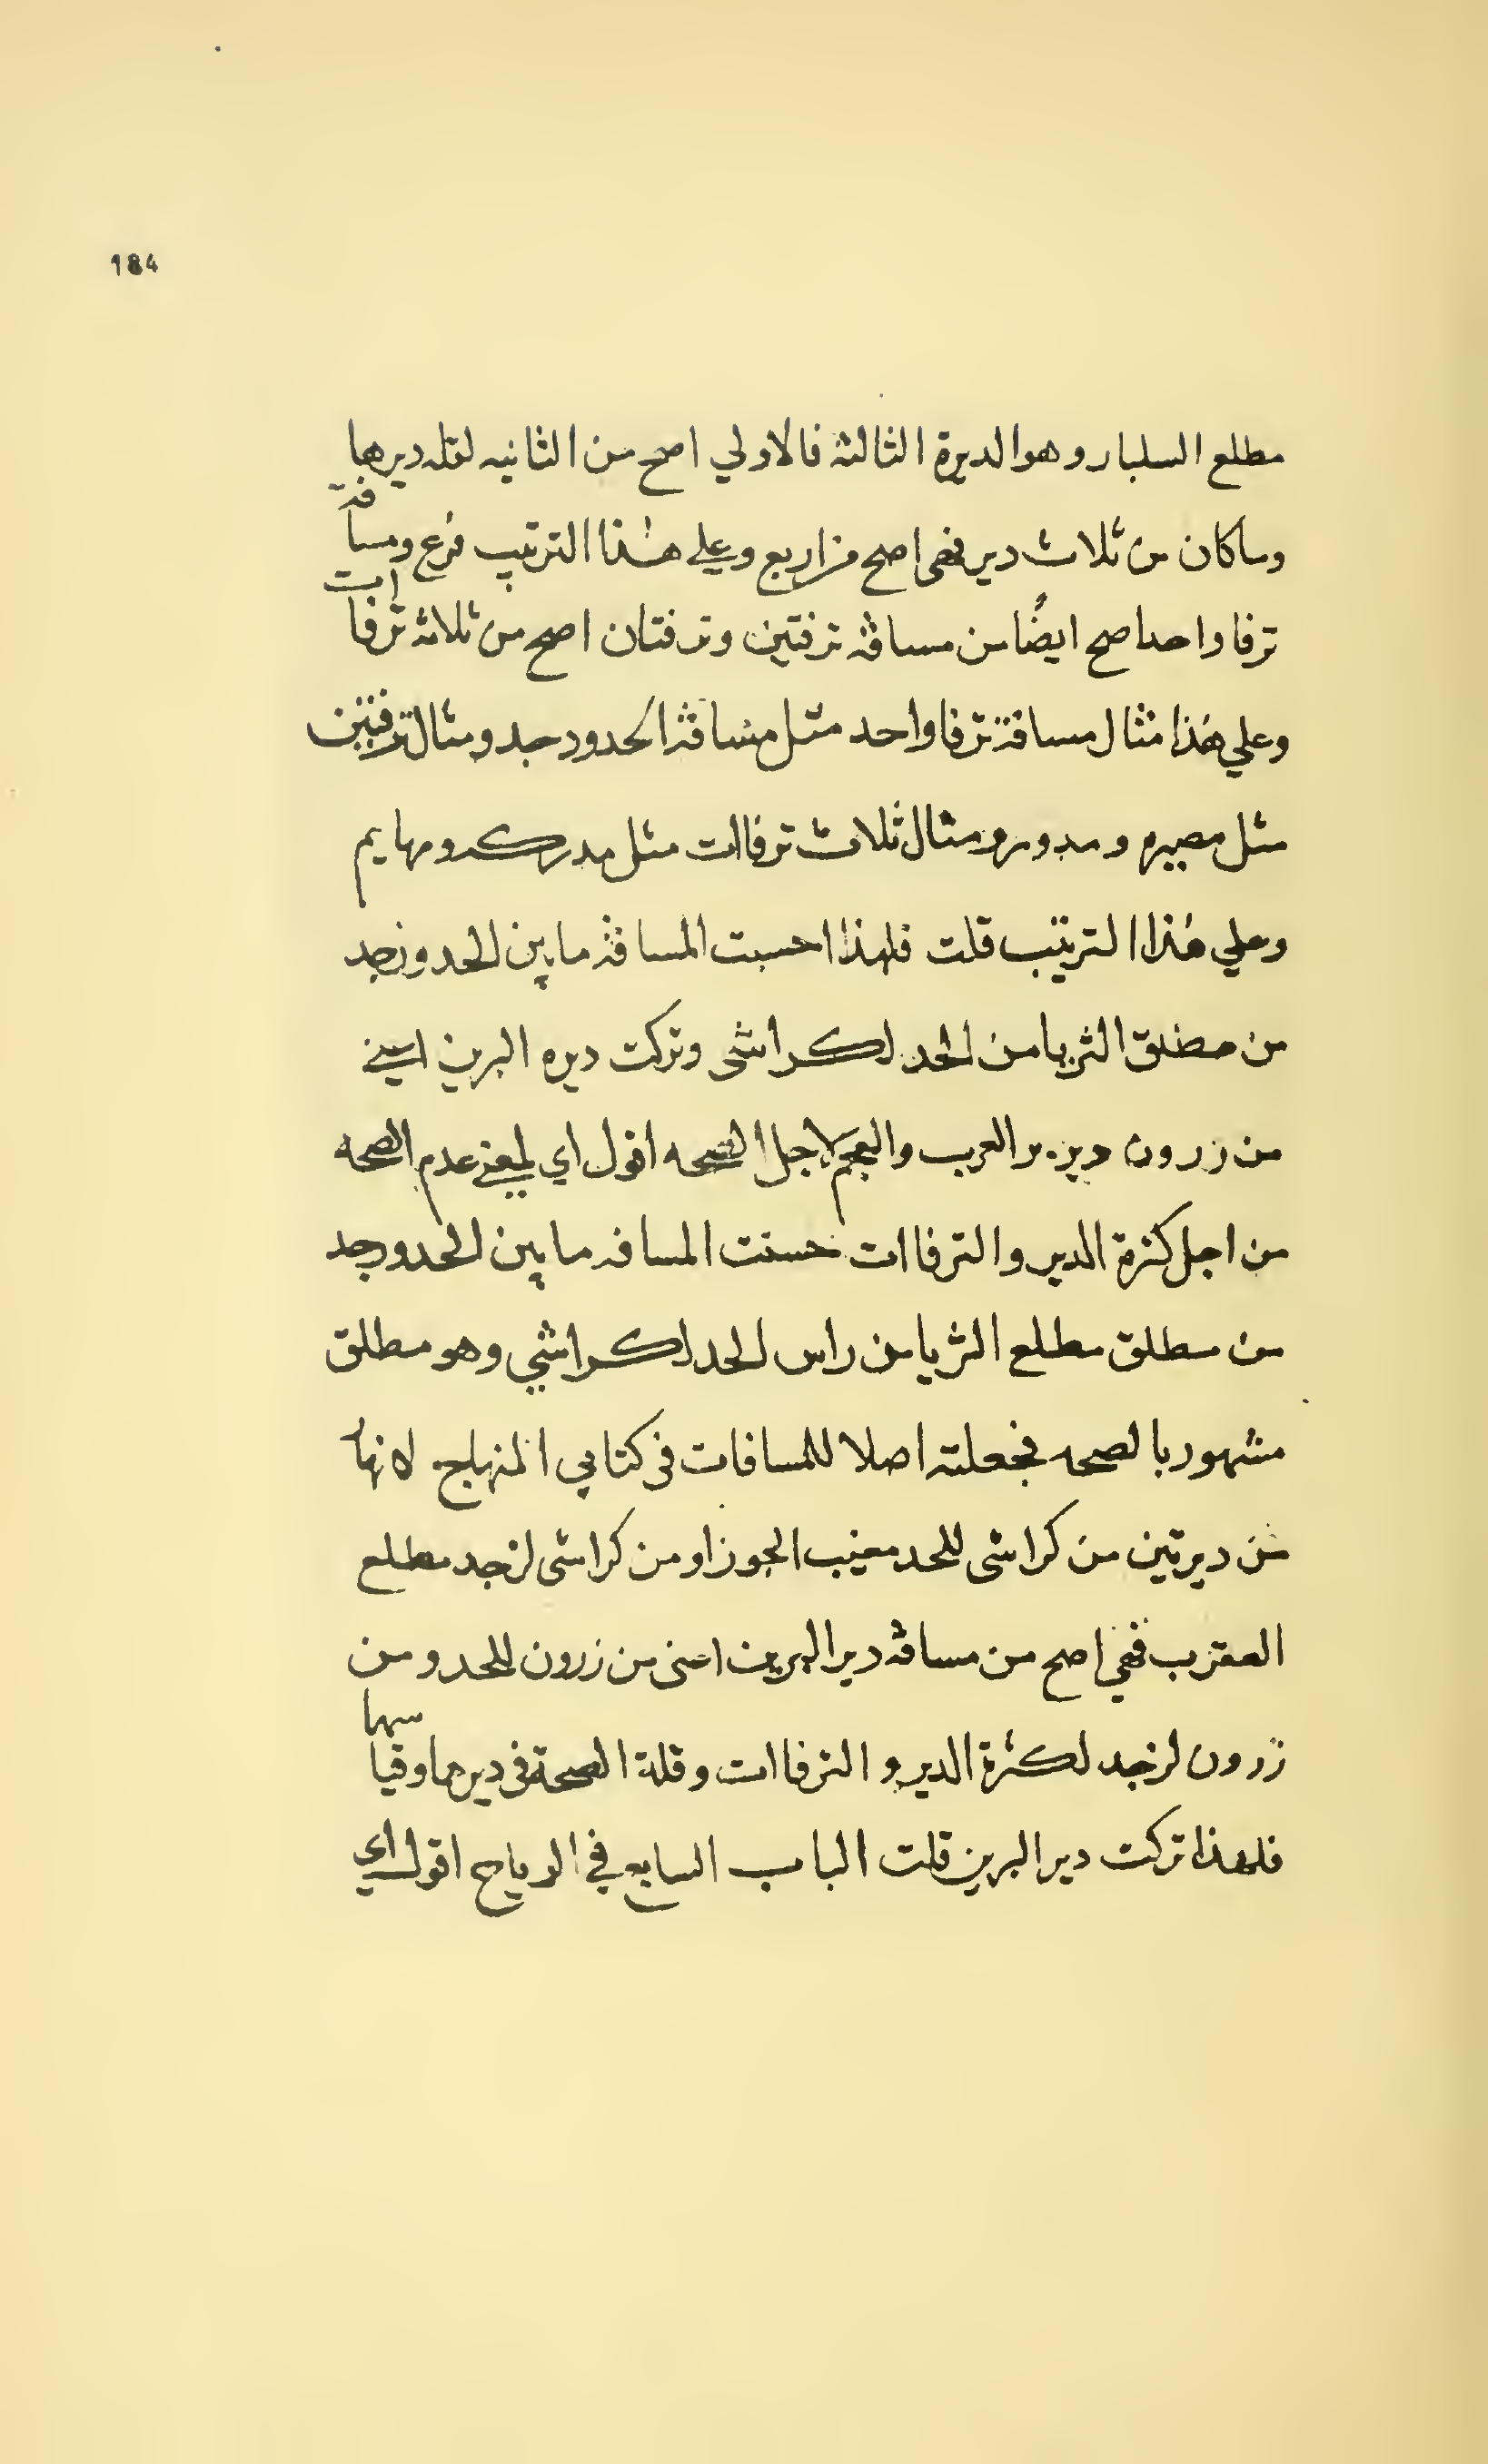 184
مطلع السلبار وهو الديرة الثالثة فالاولي اصح من الثانيه لقله ديرها
وما كان من ثلاث دير فهى اصح من اربع وعلى هذا الترتيب فرع ومسافة
ترفا واحد اصح ايضًا من مسافة ترفتين وترفتان اصح من ثلاثة ترفاات
وعلي هذا مثال مسافة ترفا واحد مثل مسافة الحد وزجد ومثال ترفتين
مثل مصيره ومدور ومثال ثلاث ترفاات مثل مدركه ومهايم
وعلي هذا الترتيب قلت فلهذا احسبت المسافة ما بين الحد وزجد
من مطلق الثريا من الحد لكراشى وتركت ديره البرين اعني
من زرون دير بر العرب والعجم لاجل الصحه اقول اي لمعنى عدم الصحه
من اجل كثرة الدير والترفاات حسبت المسافه ما بين الحد وزجد
من مطلق مطلع الثريا من راس الحد لكراشي وهو مطلق
مشهور بالصحه فجعلته اصلا للمسافات فى كتابي المنهاج لانها
من ديرتين من كراشى للحد مغيب الجوزا ومن كراشى لزجد مطلع
العقرب فهي اصح من مسافة دير البرين اعنى من زرون للحد ومن
زرون لزجد لكثرة الدير والترفاات وقلة الصحة فى ديرها وقياسها
فلهذا تركت دير البرين قلت الباب السابع في الرياح اقول اي